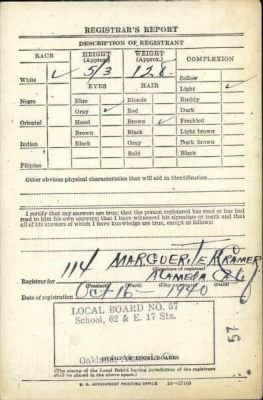 REGISTRAR'S REPORT
DESCRIPTION OF REGISTRANT
RACE HEIGHT (Approx.) WEIGHT (Approx.) COMPLEXION
White ✓ 5/3 128 Sallow
EYES HAIR Light ✓
Negro Blue Blonde Ruddy
Gray ✓ Red Dark
Oriental Hazel Brown ✓ Freckled
Brown Black Light brown
Indian Black Gray Dark brown
Bald Black
Filipino
Other obvious physical characteristics that will aid in identification
I certify that my answers are true; that the person registered has read or has had
read to him his own answers; that I have witnessed his signature or mark and that
all of his answers of which I have knowledge are true, except as follows:
MARGUERITE KRAMER
(Signature of registrar)
Registrar for 114 ALAMEDA
(Precinct) (Ward) (City or county) (State)
Date of registration Oct-16-1940
LOCAL BOARD NO. 57
School, 62 & E. 17 Sts.
(STAMP OF LOCAL BOARD)
(The stamp of the Local Board having jurisdiction of the registrant
shall be placed in the above space.)
U. S. GOVERNMENT PRINTING OFFICE 16-17105
57